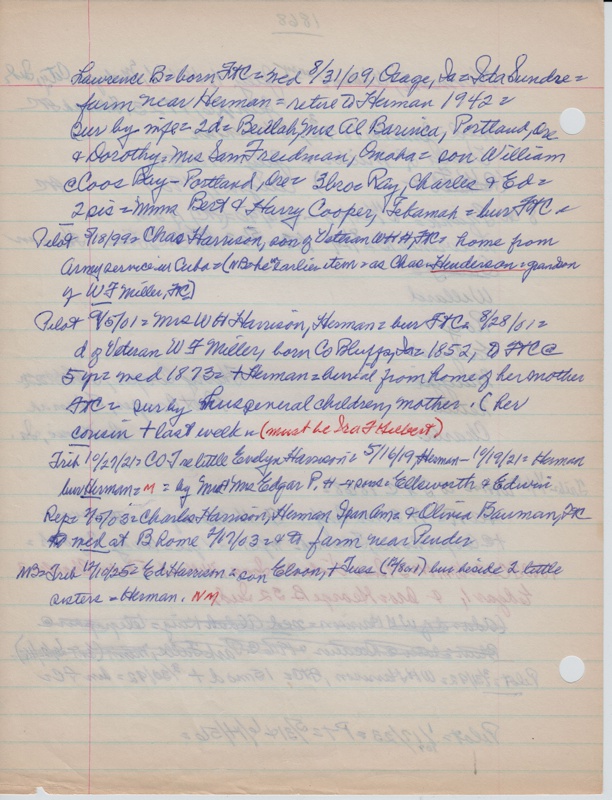 1868
Lawrence B = born FtC = wed 8/31/09, Osage, Ia = Ida Sundre =
farm near Herman = retire to Herman 1942 =
Sur by wife = 2d = Beulah, Mrs Al Barinca, Portland, Ore
& Dorothy, Mrs Sam Freidman, Omaha = son William
@ Coos Bay - Portland, Ore = 3 bro = Ray, Charles & Ed =
2 sis = Mmes Bert & Harry Cooper, Tekamah = bur FtC =
Pilot 9/18/99 = Chas Harrison, son of Veteran WHH, FtC = home from
Army service in Cuba = (NB = he earlier item = as Chas Henderson = grandson
of W F Miller, FtC)
Pilot 9/5/01 = Mrs WH Harrison, Herman = bur FtC = 8/28/01 =
d of Veteran W F Miller, born Co Bluffs, Ia = 1852, to FtC @
5 yr = wed 1873 = + Herman = burial from home of her mother
FtC = sur by hus several children, mother. (her
cousin + last week = (must be Ira F Hilbert)
Trib 10/27/21 = COT = little Evelyn Harrison = 5/16/19 Herman - 10/19/21 = Herman
bur Herman = M = by Mr & Mrs Edgar P. H - 4 sons = Ellsworth & Edwin
Rep = 7/5/03 = Charles Harrison, Herman Span Am & Olivia Bauman, FtC
wed at B home = to farm near Pender
MB = Trib 12/10/25 = Ed Harrison = son Eldon, + Tues bur beside 2 little
sisters = Herman. NM